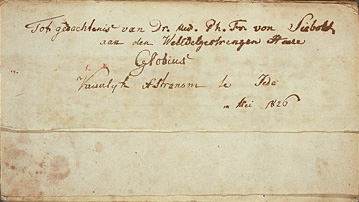 Tot gedachtenis van Dr. Med. Ph. Fr. von Siebold
aan den Weledelgestrengen Heere
Globius
Keiserlyk Astronom te Jedo
Mei 1826